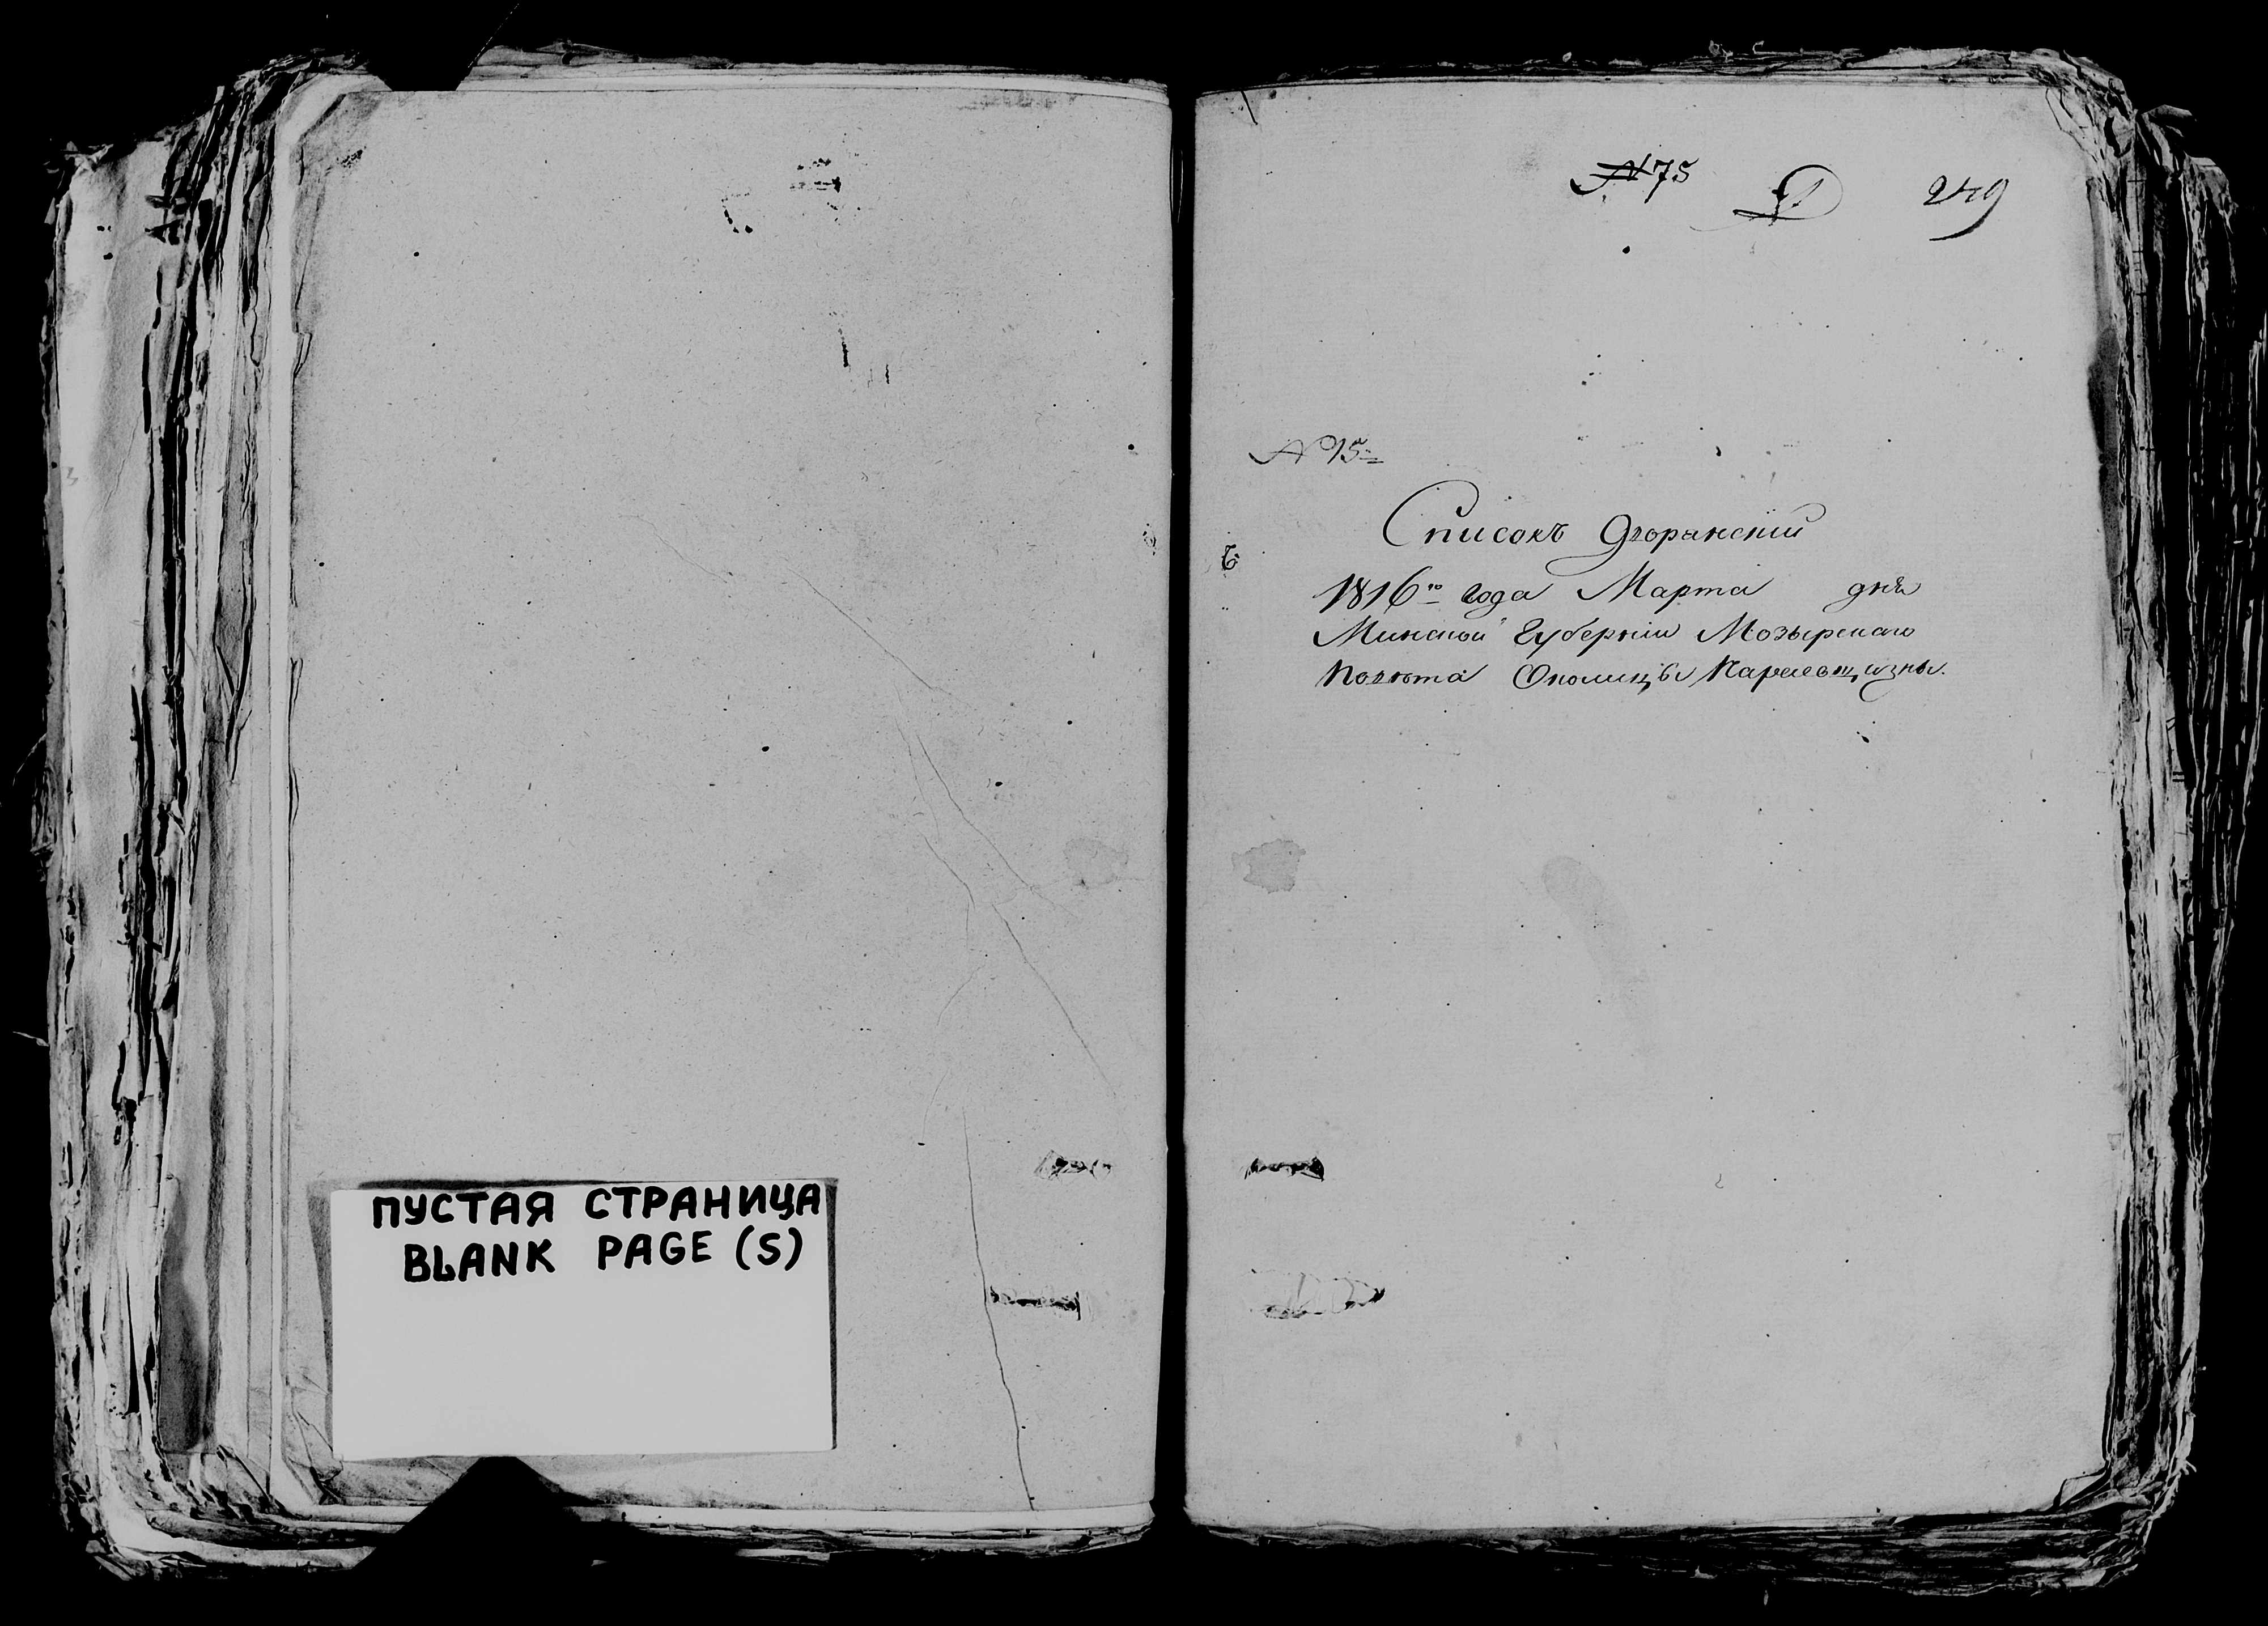 ПУСТАЯ СТРАНИЦА
BLANK PAGE (S)
№75 249
№ 15
Списокъ Дворянскій
1816го года Марта дня
Минской Губерніи Мозырскаго
Повѣта Околицы Кареевщизны.